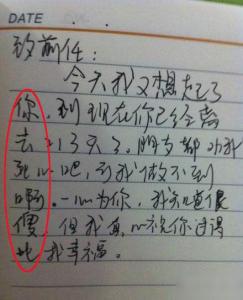 DATE
致前任：
今天我又想起了
你，到现在你已经离
去213天了。朋友都劝我
死心吧，可我做不到
啊。一心为你，我知道很
傻。但我真心祝你过得
比我幸福。